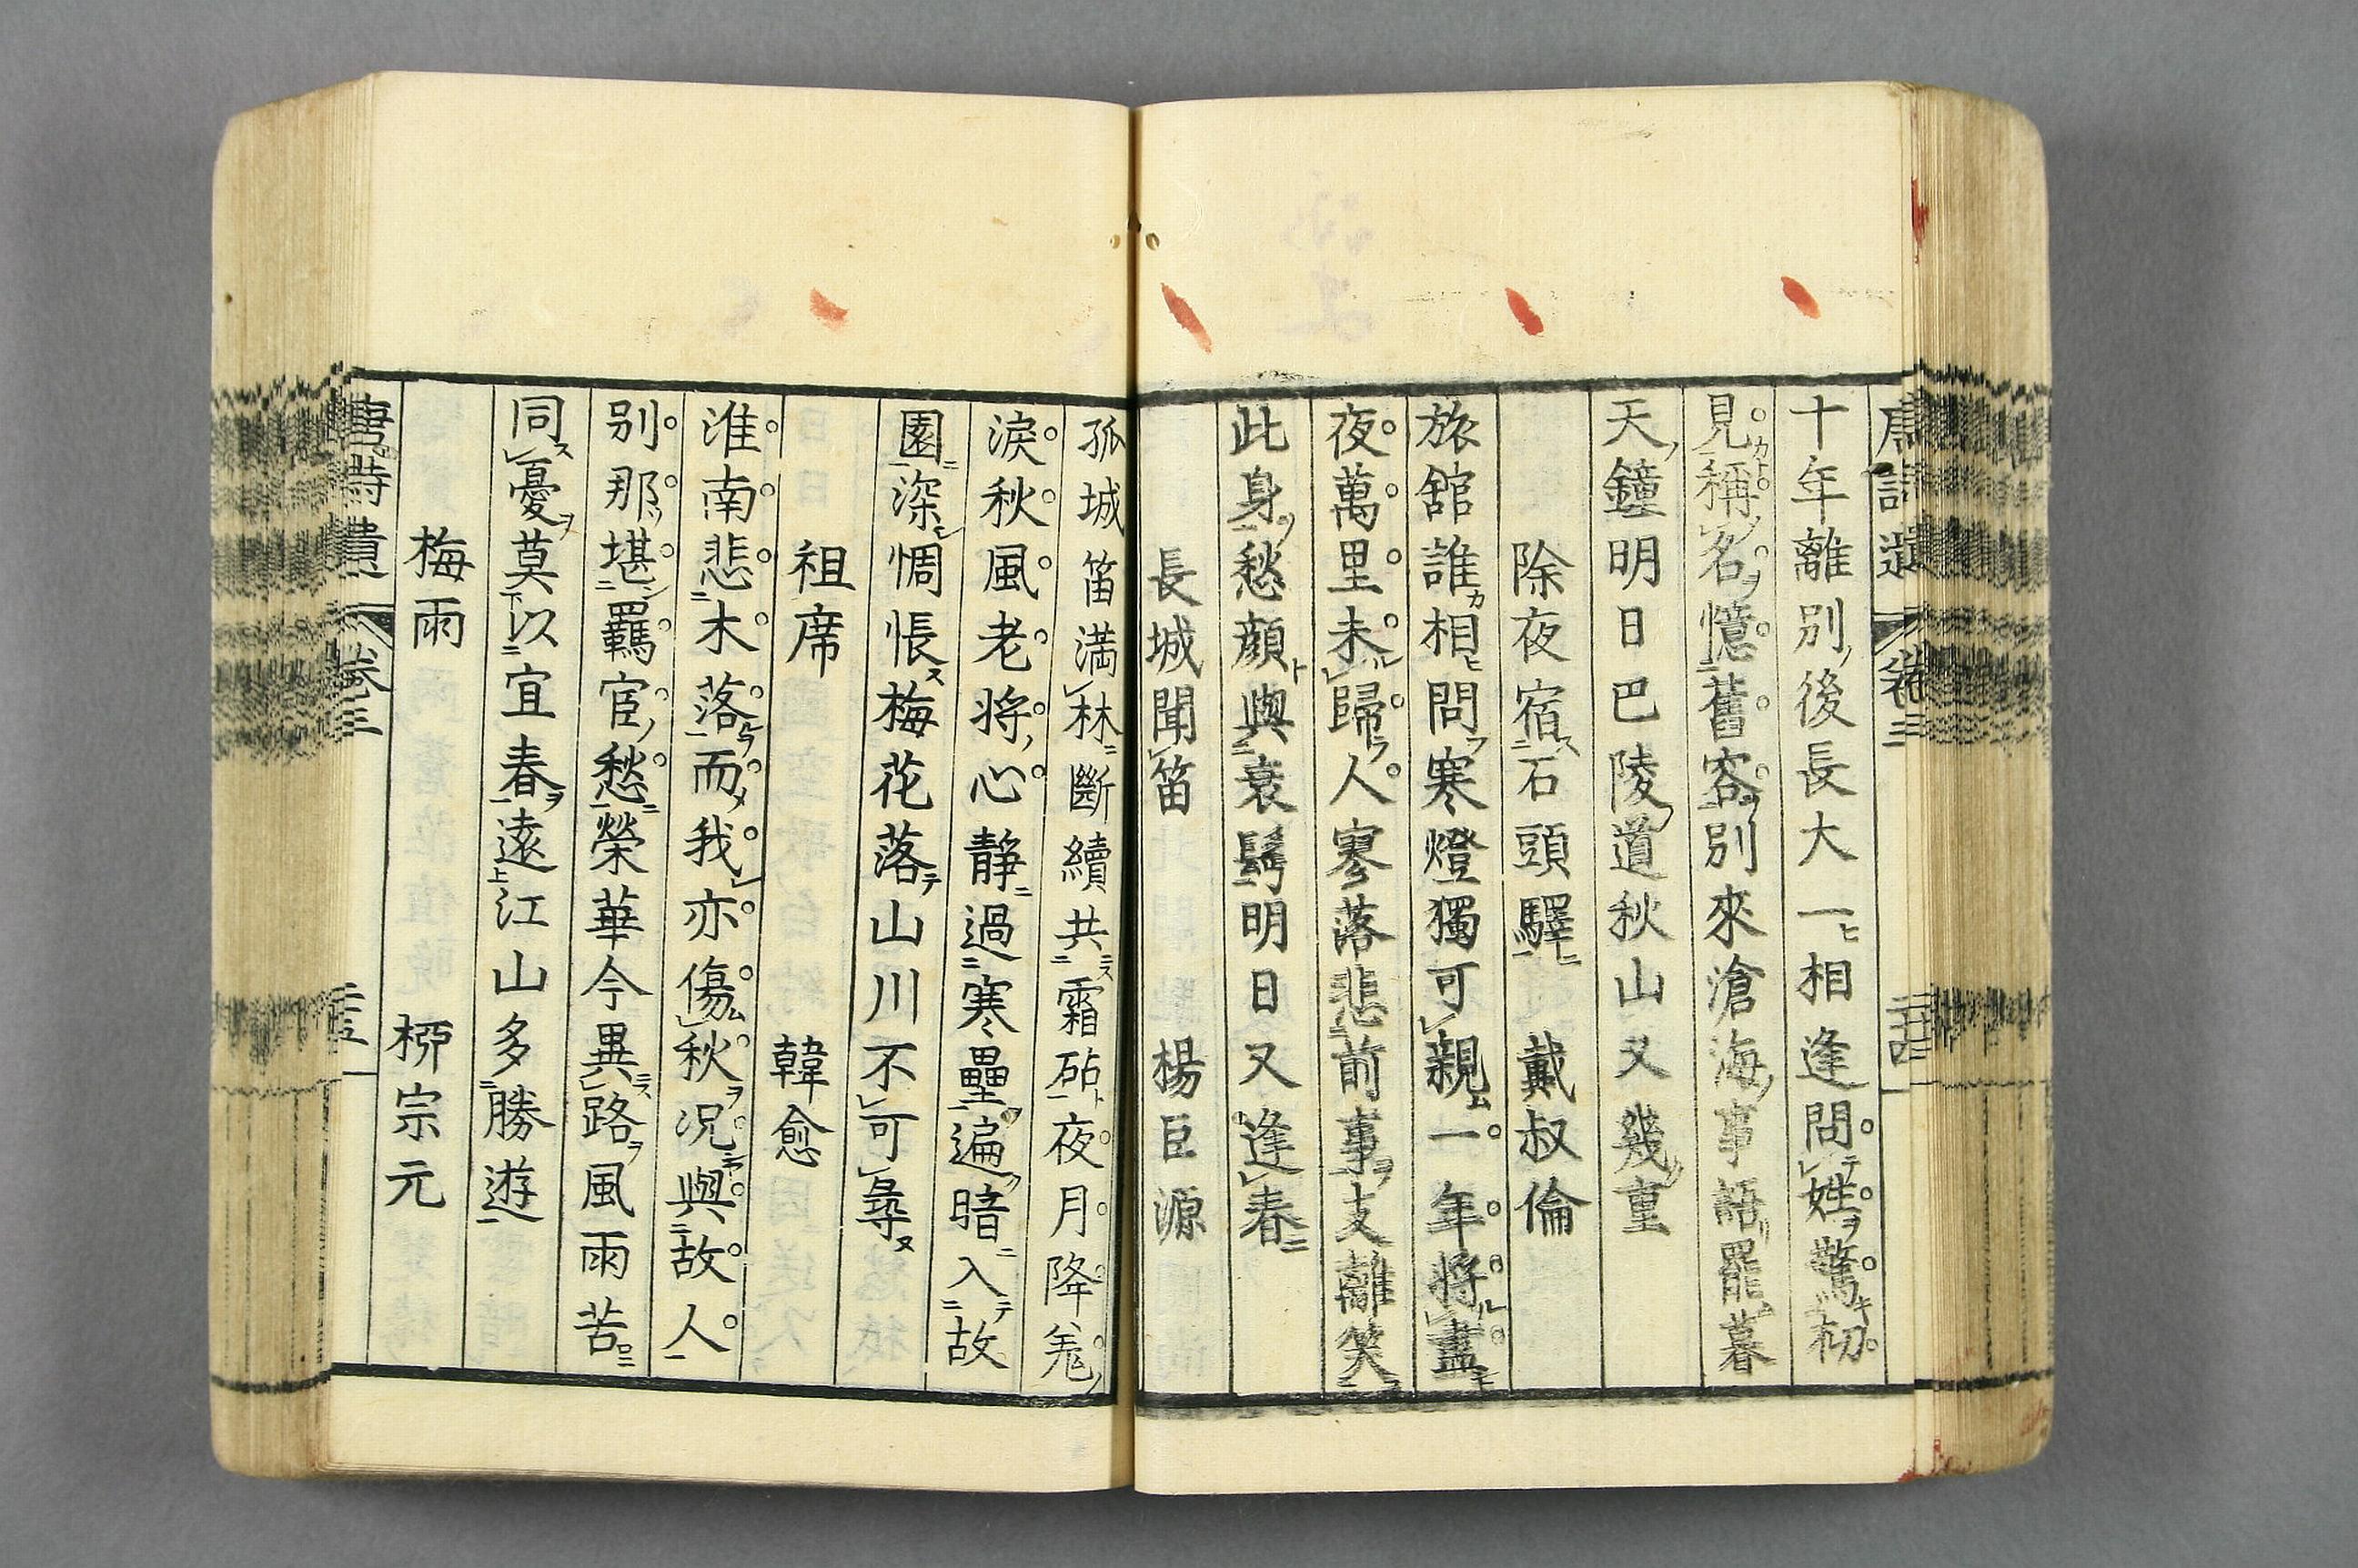 十年離別後長大一相逢問姓驚初
見稱名憶舊容別來滄海事語罷暮
天鐘明日巴陵道秋山又幾重
除夜宿石頭驛　戴叔倫
旅舘誰相問寒燈獨可親一年將盡
夜萬里未歸人寥落悲前事支離笑
此身愁顔與衰鬢明日又逢春
長城聞笛　楊巨源
孤城笛満林斷續共霜砧夜月降羌
淚秋風老將心靜過寒壘遍暗入故
園深惆悵梅花落山川不可尋
祖席　韓愈
淮南悲木落而我亦傷秋况與故人
別那堪羈宦愁榮華今異路風雨苦
同憂莫以宜春遠江山多勝遊
梅雨　栁宗元